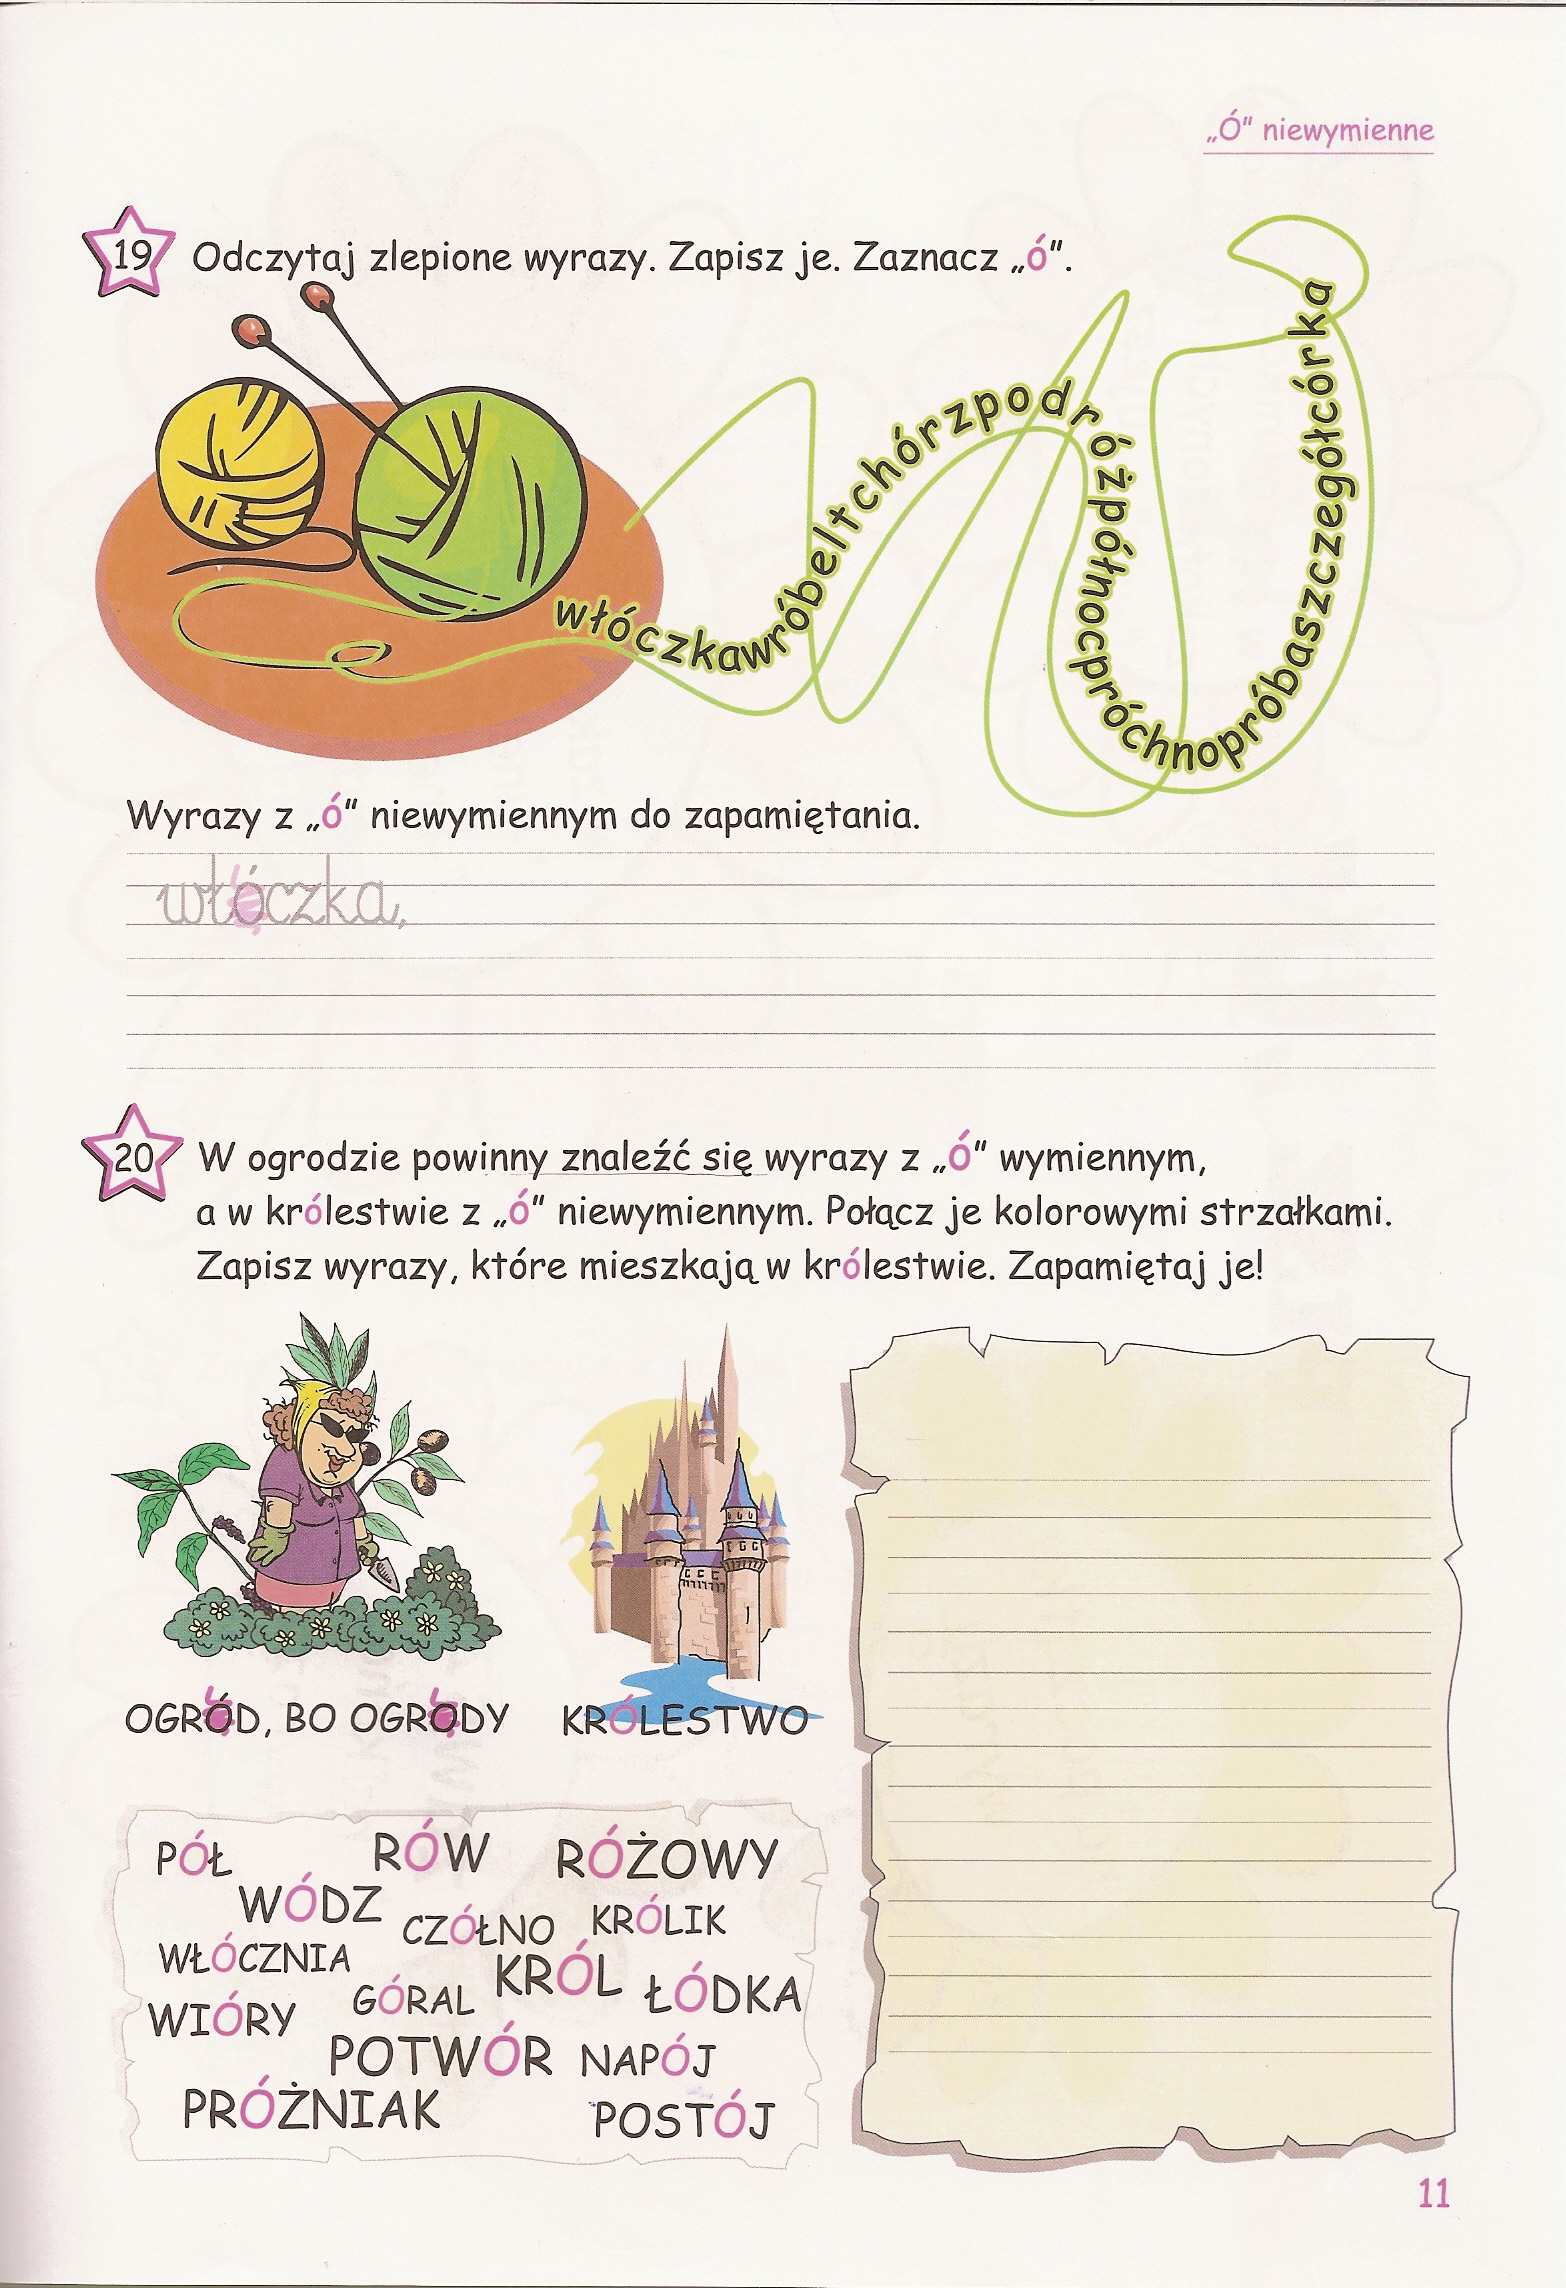 „Ó" niewymienne
19 Odczytaj zlepione wyrazy. Zapisz je. Zaznacz „ó".
włóczkawróbeltchórzpodróżpółnocpróchnopróbaszczegółcórka
Wyrazy z „ó" niewymiennym do zapamiętania.
włóczka,
20 W ogrodzie powinny znaleźć się wyrazy z „ó" wymiennym,
a w królestwie z „ó" niewymiennym. Połącz je kolorowymi strzałkami.
Zapisz wyrazy, które mieszkają w królestwie. Zapamiętaj je!
OGRÓD, BO OGRODY KRÓLESTWO
PÓŁ RÓW RÓŻOWY
WÓDZ CZÓŁNO KRÓLIK
WŁÓCZNIA KRÓL
WIÓRY GÓRAL ŁÓDKA
POTWÓR NAPÓJ
PRÓŻNIAK POSTÓJ
11